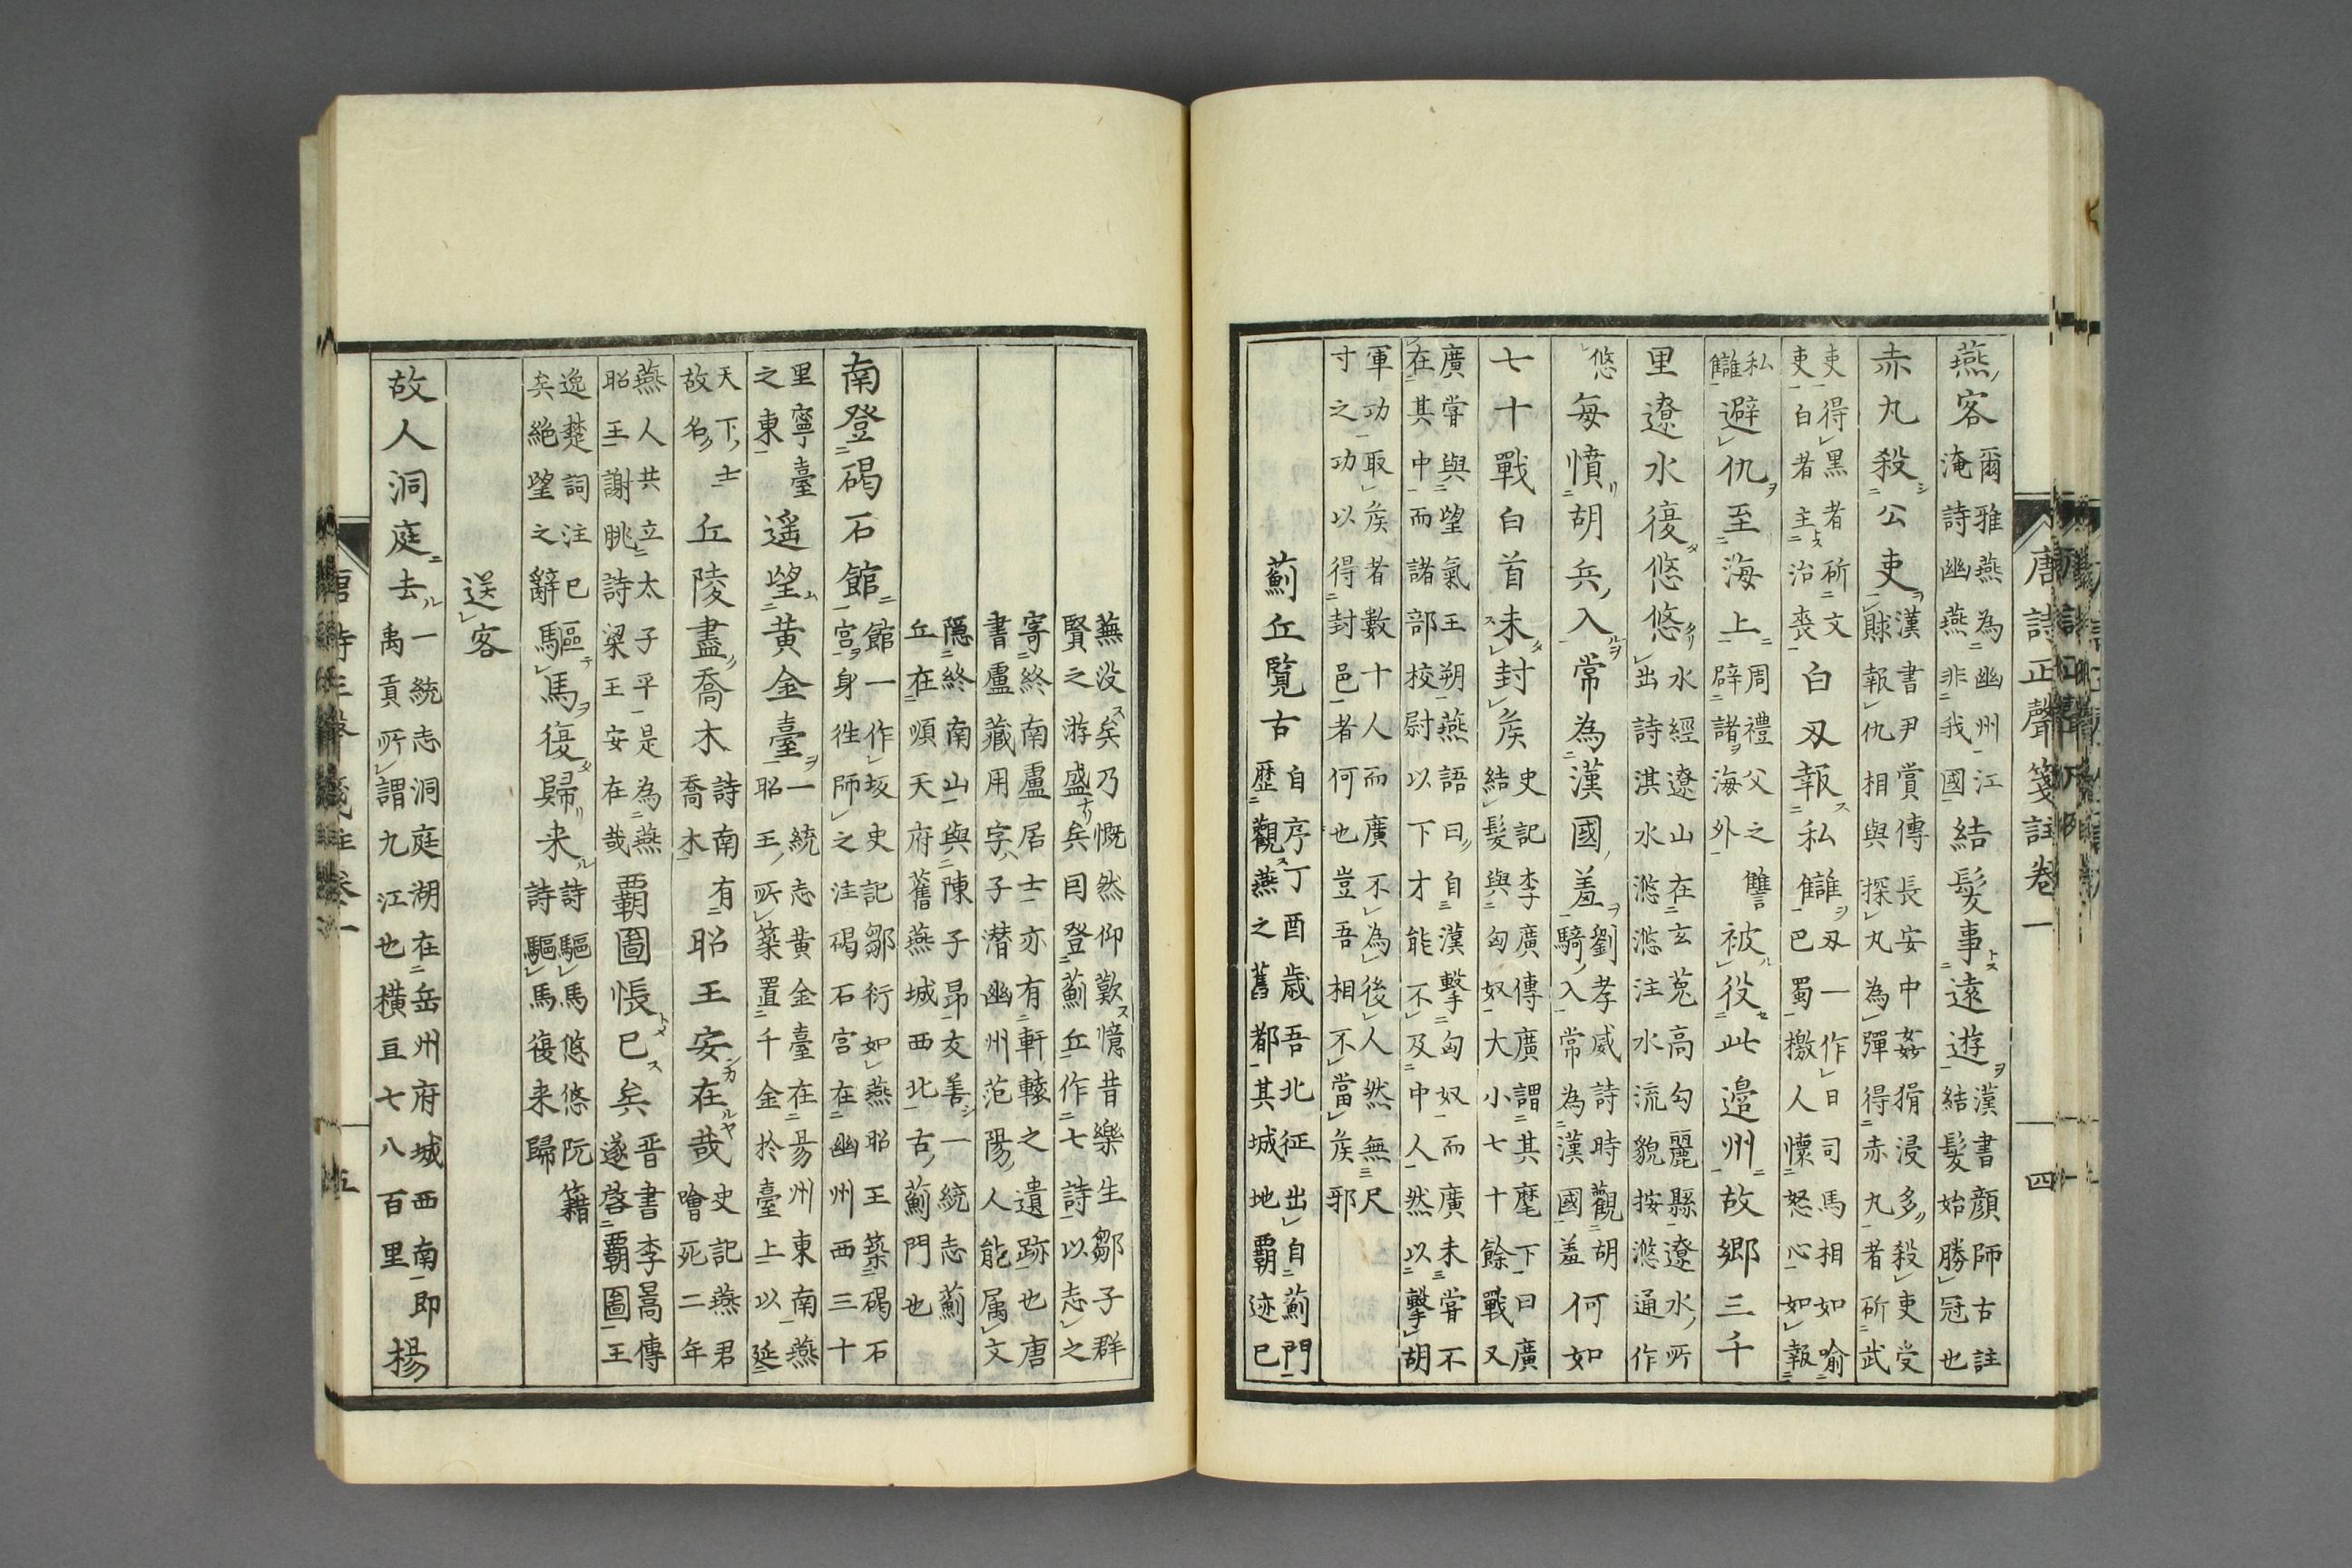 唐詩正聲箋註卷一 四
燕客爾雅燕為幽州江淹詩幽燕非我國結髮事遠遊漢書顔師古註結髮始勝冠也
赤丸殺公吏漢書尹賞傳長安中姦猾浸多殺吏受賕報仇相與探丸為彈得赤丸者斫武
吏得黒者斫文吏白者主治喪白刄報私讎刄一作日司馬相如喻巴蜀檄人懷怒心如報
私讎避仇至海上周禮父之讐辟諸海外被役此邉州故郷三千
里遼水復悠悠水經遼山在玄菟高勾麗縣遼水所出詩淇水滺滺注水流貌按滺通作
悠每憤胡兵入常為漢國羞劉孝威詩時觀胡騎入常為漢國羞何如
七十戰白首未封矦史記李廣傳廣謂其麾下曰廣結髪與匈奴大小七十餘戰又
廣甞與望氣王朔燕語曰自漢擊匈奴而廣未甞不在其中而諸部校尉以下才能不及中人然以擊胡
軍功取矦者數十人而廣不為後人然無尺寸之功以得封邑者何也豈吾相不當矦邪
薊丘覧古自序丁酉歳吾北征出自薊門歴觀燕之舊都其城地覇迹已
蕪没矣乃慨然仰歎憶昔樂生鄒子群賢之游盛矣因登薊丘作七詩以志之
寄終南盧居士亦有軒轅之遺跡也唐書盧藏用字子潜幽州范陽人能属文
隠終南山與陳子昂友善一統志薊丘在順天府舊燕城西北古薊門也
南登碣石館館一作坂史記鄒衍如燕昭王築碣石宫身徃師之注碣石宫在幽州西三十
里寧臺之東遥望黄金臺一統志黄金臺在昜州東南燕昭王所築置千金於臺上以延
天下士故名丘陵盡喬木詩南有喬木昭王安在哉史記燕君噲死二年
燕人共立太子平是為燕昭王謝眺詩梁王安在哉覇圖悵已矣晋書李暠傳遂啓覇圖王
逸楚詞注已矣絶望之辭驅馬復歸来詩驅馬悠悠阮籍詩驅馬復来歸
送客
故人洞庭去一統志洞庭湖在岳州府城西南即禹貢所謂九江也横亘七八百里楊